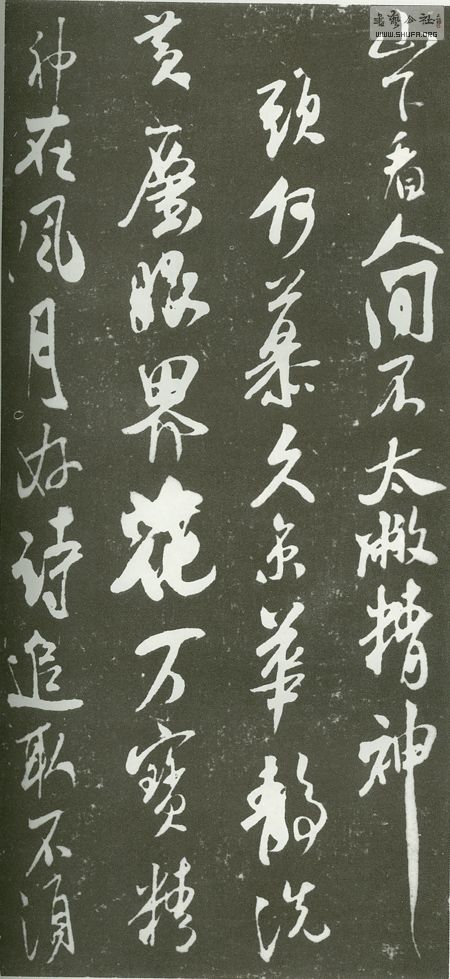 書藝公社
WWW.SHUFA.ORG
山下看人間不太精神
頭何慕久京華靜洗
黃塵眼界花万寶精
神在風月好詩追取不須